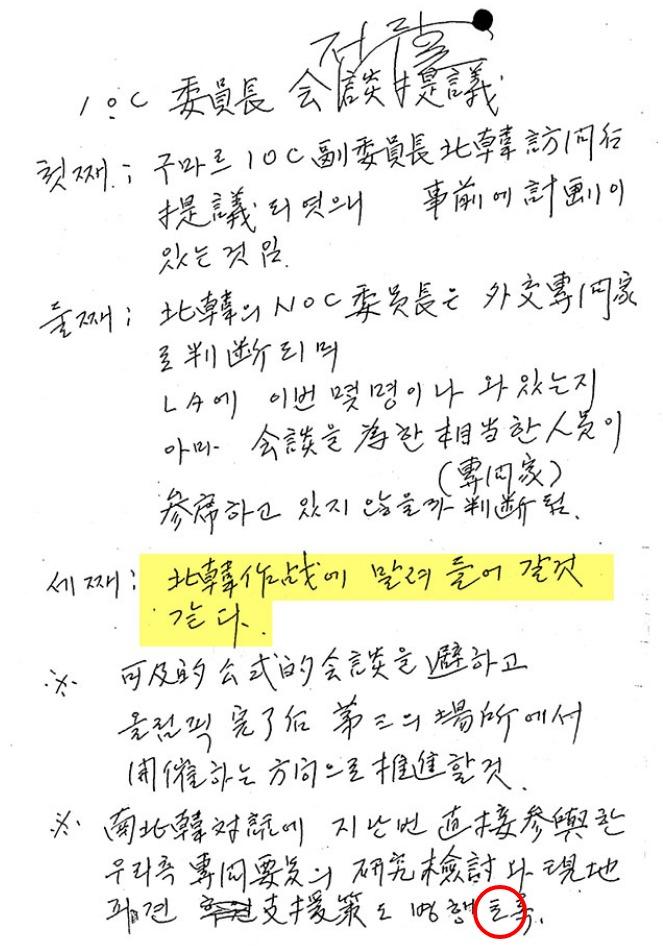 IOC 委員長 会談 提議
첫째; 구마르 IOC 副委員長 北韓訪问后
提議 되엿으니 事前에 計劃이
있는것임.
둘째; 北韓의 NOC 委员長은 外交專门家
로 判断되며
LA에 이번 몇명이나 와 있는지
아마 会談을 為한 相当한 人员이
(專门家)
参席하고 있지 않을까 判断됨.
세째; 北韓作战에 말려 들어 갈것
같다.
※ 可及的 公式的 会談을 避하고
올림픽 完了后 第三의 場所에서
開催하는 方向으로 推進할것.
※ 南北韓对話에 지난번 直接参與한
우리측 專门要员의 研究檢討와 現地
派遣 支援策도 병행토록.